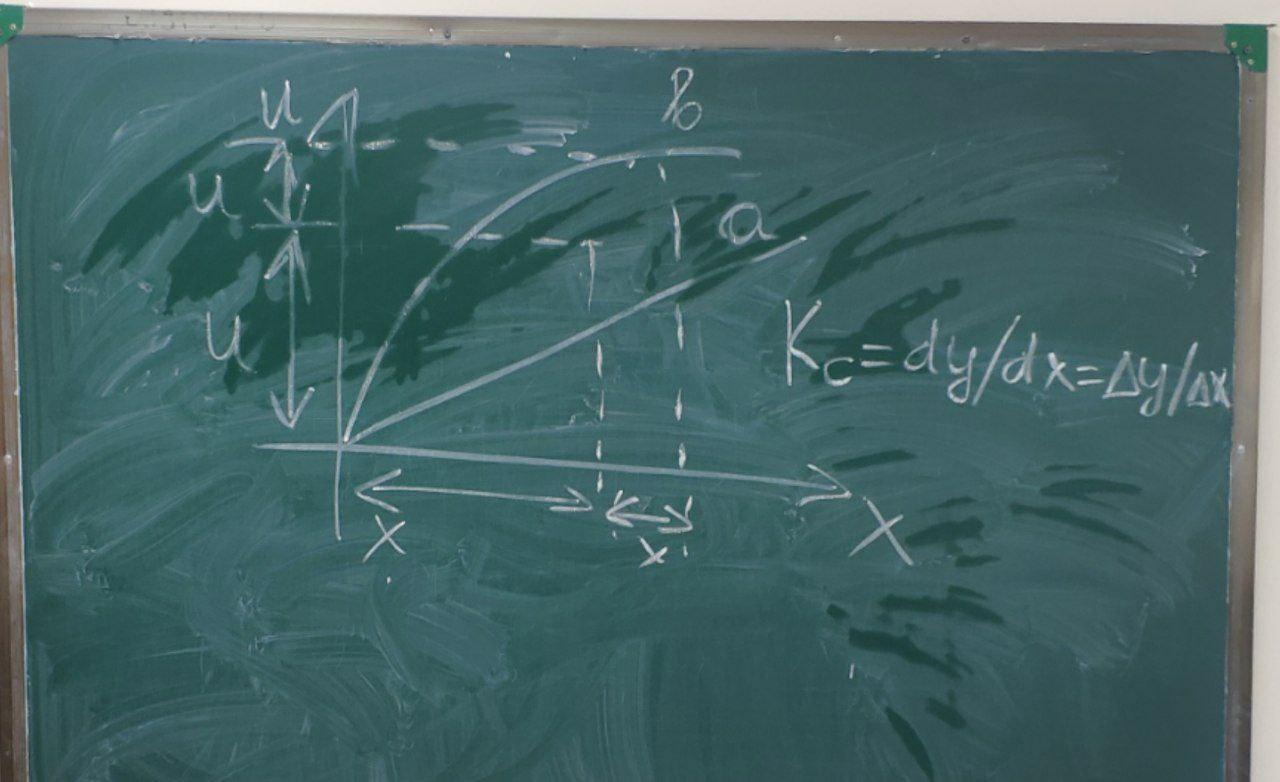 u
b
u
a
u
Kc=dy/dx=Δy/Δx
x
x
X